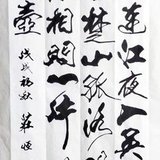 連江夜入吳
楚山孤洛
相問一片
壺 戊戌